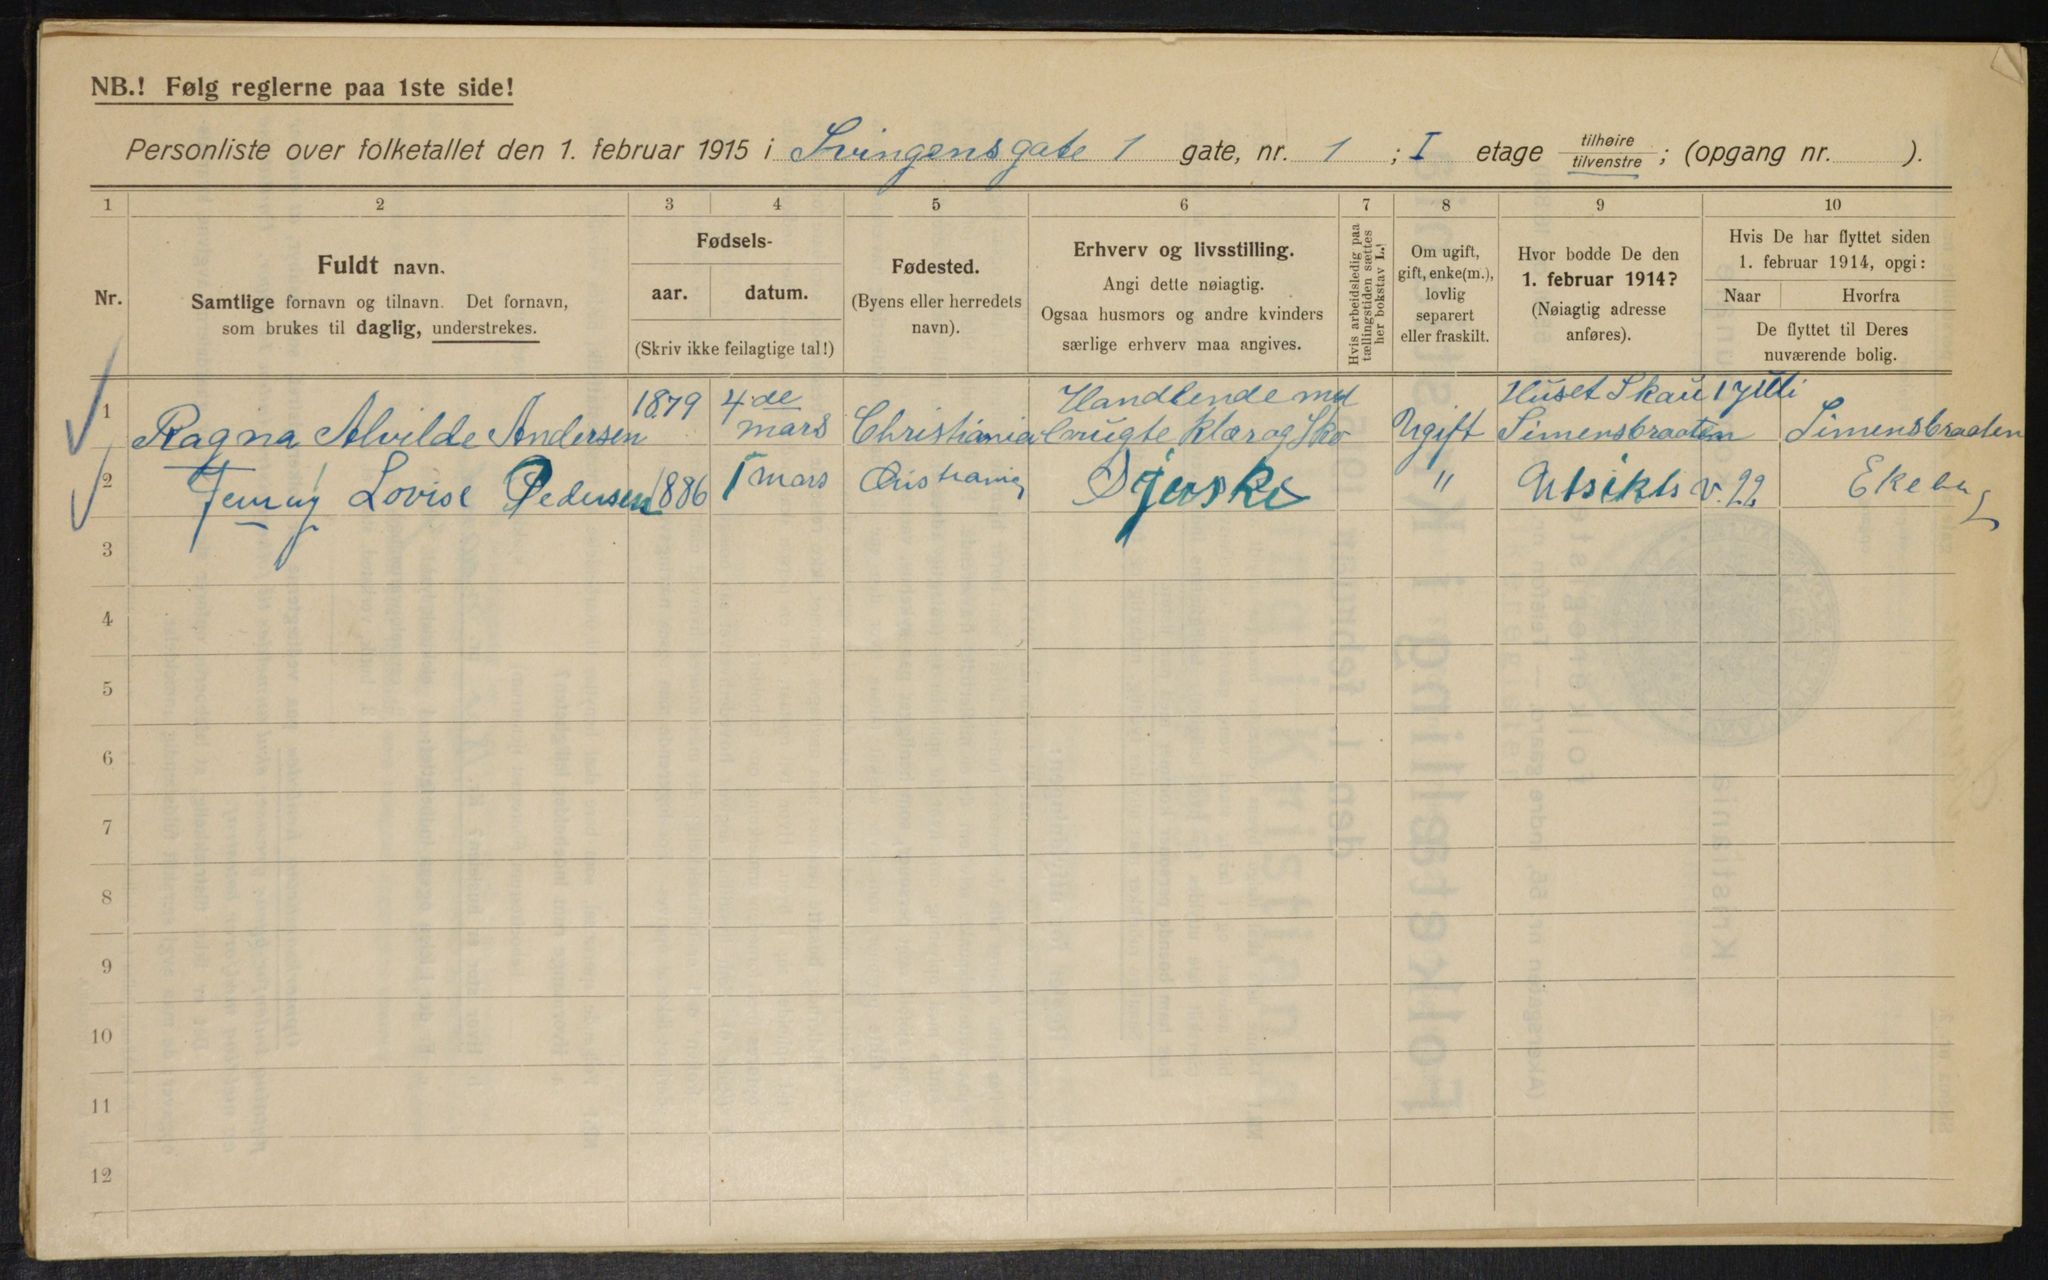 NB.! Følg reglerne paa 1ste side!
Personliste over folketallet den 1. februar 1915 i Svingensgate 1 gate, nr. 1 ; I etage tilhøire tilvenstre ; (opgang nr. ).
1 2 3 4 5 6 7 8 9 10
Nr.
Fuldt navn.
Samtlige fornavn og tilnavn. Det fornavn,
som brukes til daglig, understrekes.
Fødsels-
aar. datum.
(Skriv ikke feilagtige tal!)
Fødested.
(Byens eller herredets
navn).
Erhverv og livsstilling.
Angi dette nøiagtig.
Ogsaa husmors og andre kvinders
særlige erhverv maa angives.
Hvis arbeidsledig paa
tællingstiden sættes
her bokstav L.!
Om ugift,
gift, enke(m.),
lovlig
separert
eller fraskilt.
Hvor bodde De den
1. februar 1914?
(Nøiagtig adresse
anføres).
Hvis De har flyttet siden
1. februar 1914, opgi:
Naar Hvorfra
De flyttet til Deres
nuværende bolig.
1 Ragna Alvilde Andersen 1879 4de mars Christiania Handlende med brugte klær og Sko Ugift Huset Skau Simensbraaten 1 Juli Simensbraaten
2 Jenny Lovise Pedersen 1886 1 mars Cristiania " Utsikts v. 22 Ekeberg
3
4
5
6
7
8
9
10
11
12